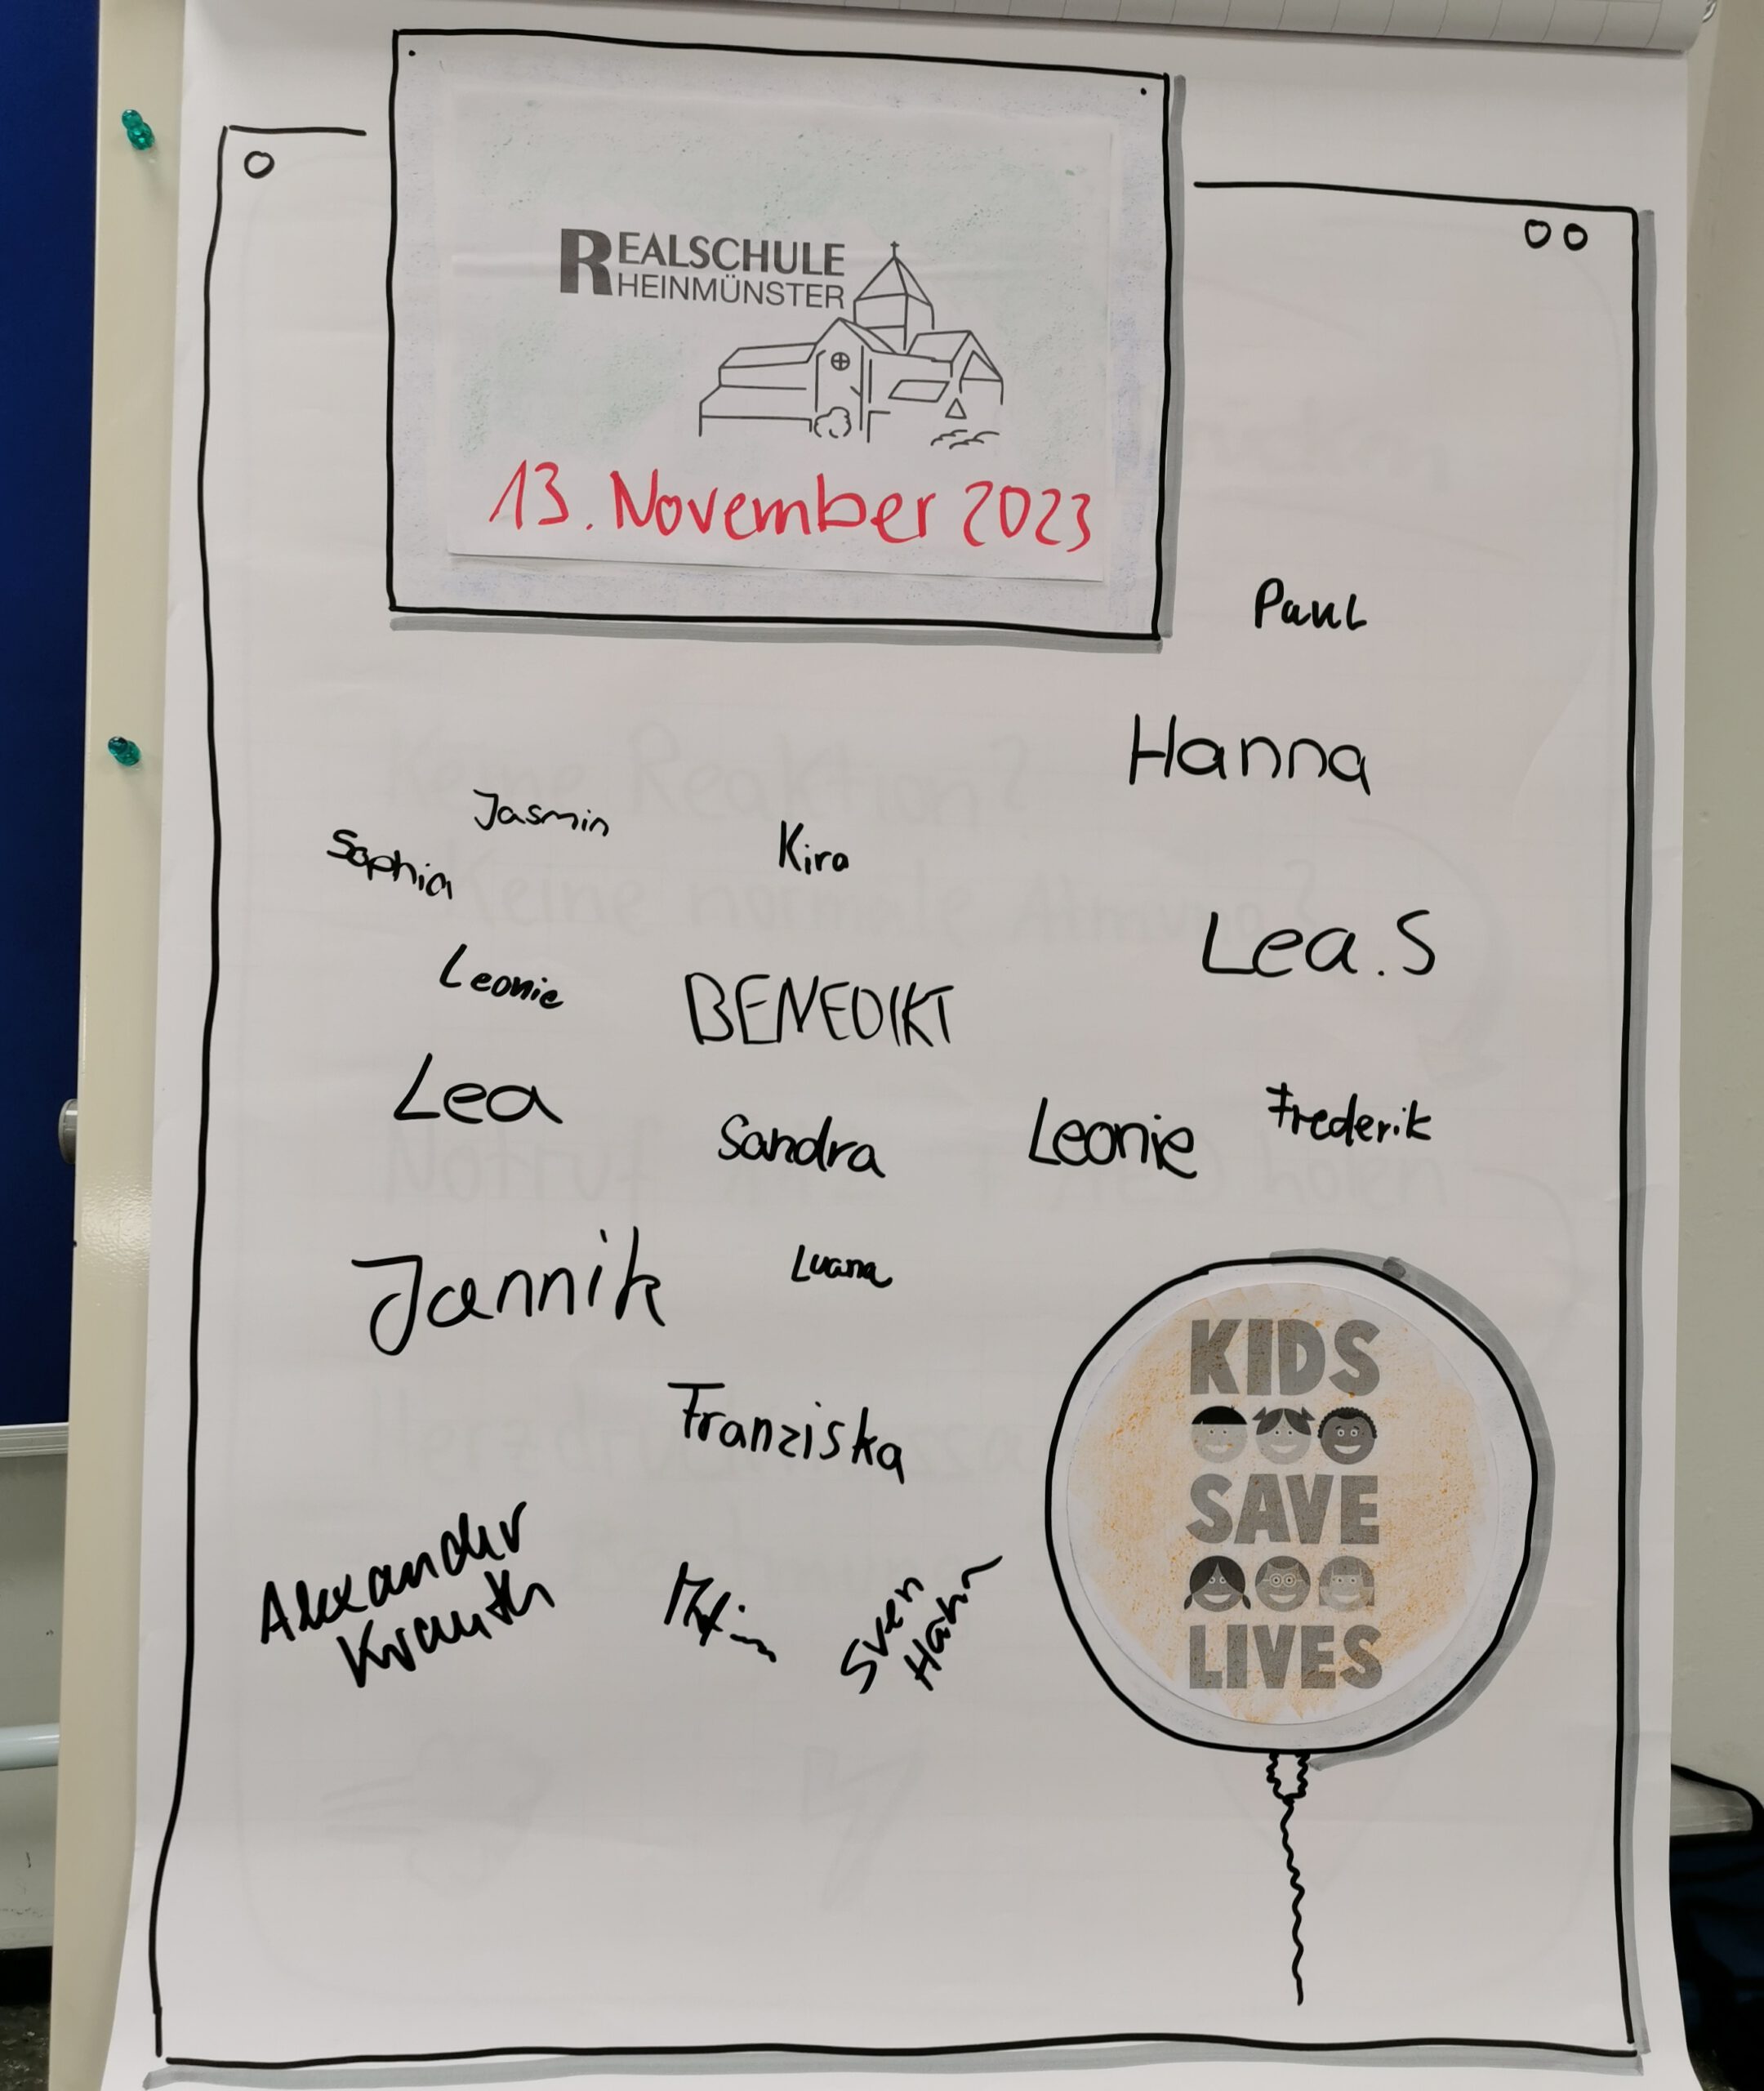 REALSCHULE
RHEINMÜNSTER
13. November 2023
Paul
Hanna
Jasmin
Sophia
Kira
Lea.S
Leonie
BENEDIKT
Lea
Sandra
Leonie
Frederik
Jannik
Luana
Franziska
Alexander
Krauth
Sven
Hahn
KIDS
SAVE
LIVES
Keine Reaktion?
Keine normale Atmung?